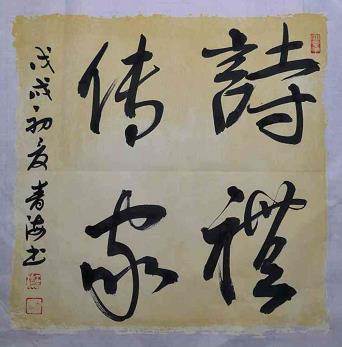 詩禮
传家
戊戌初夏青海书